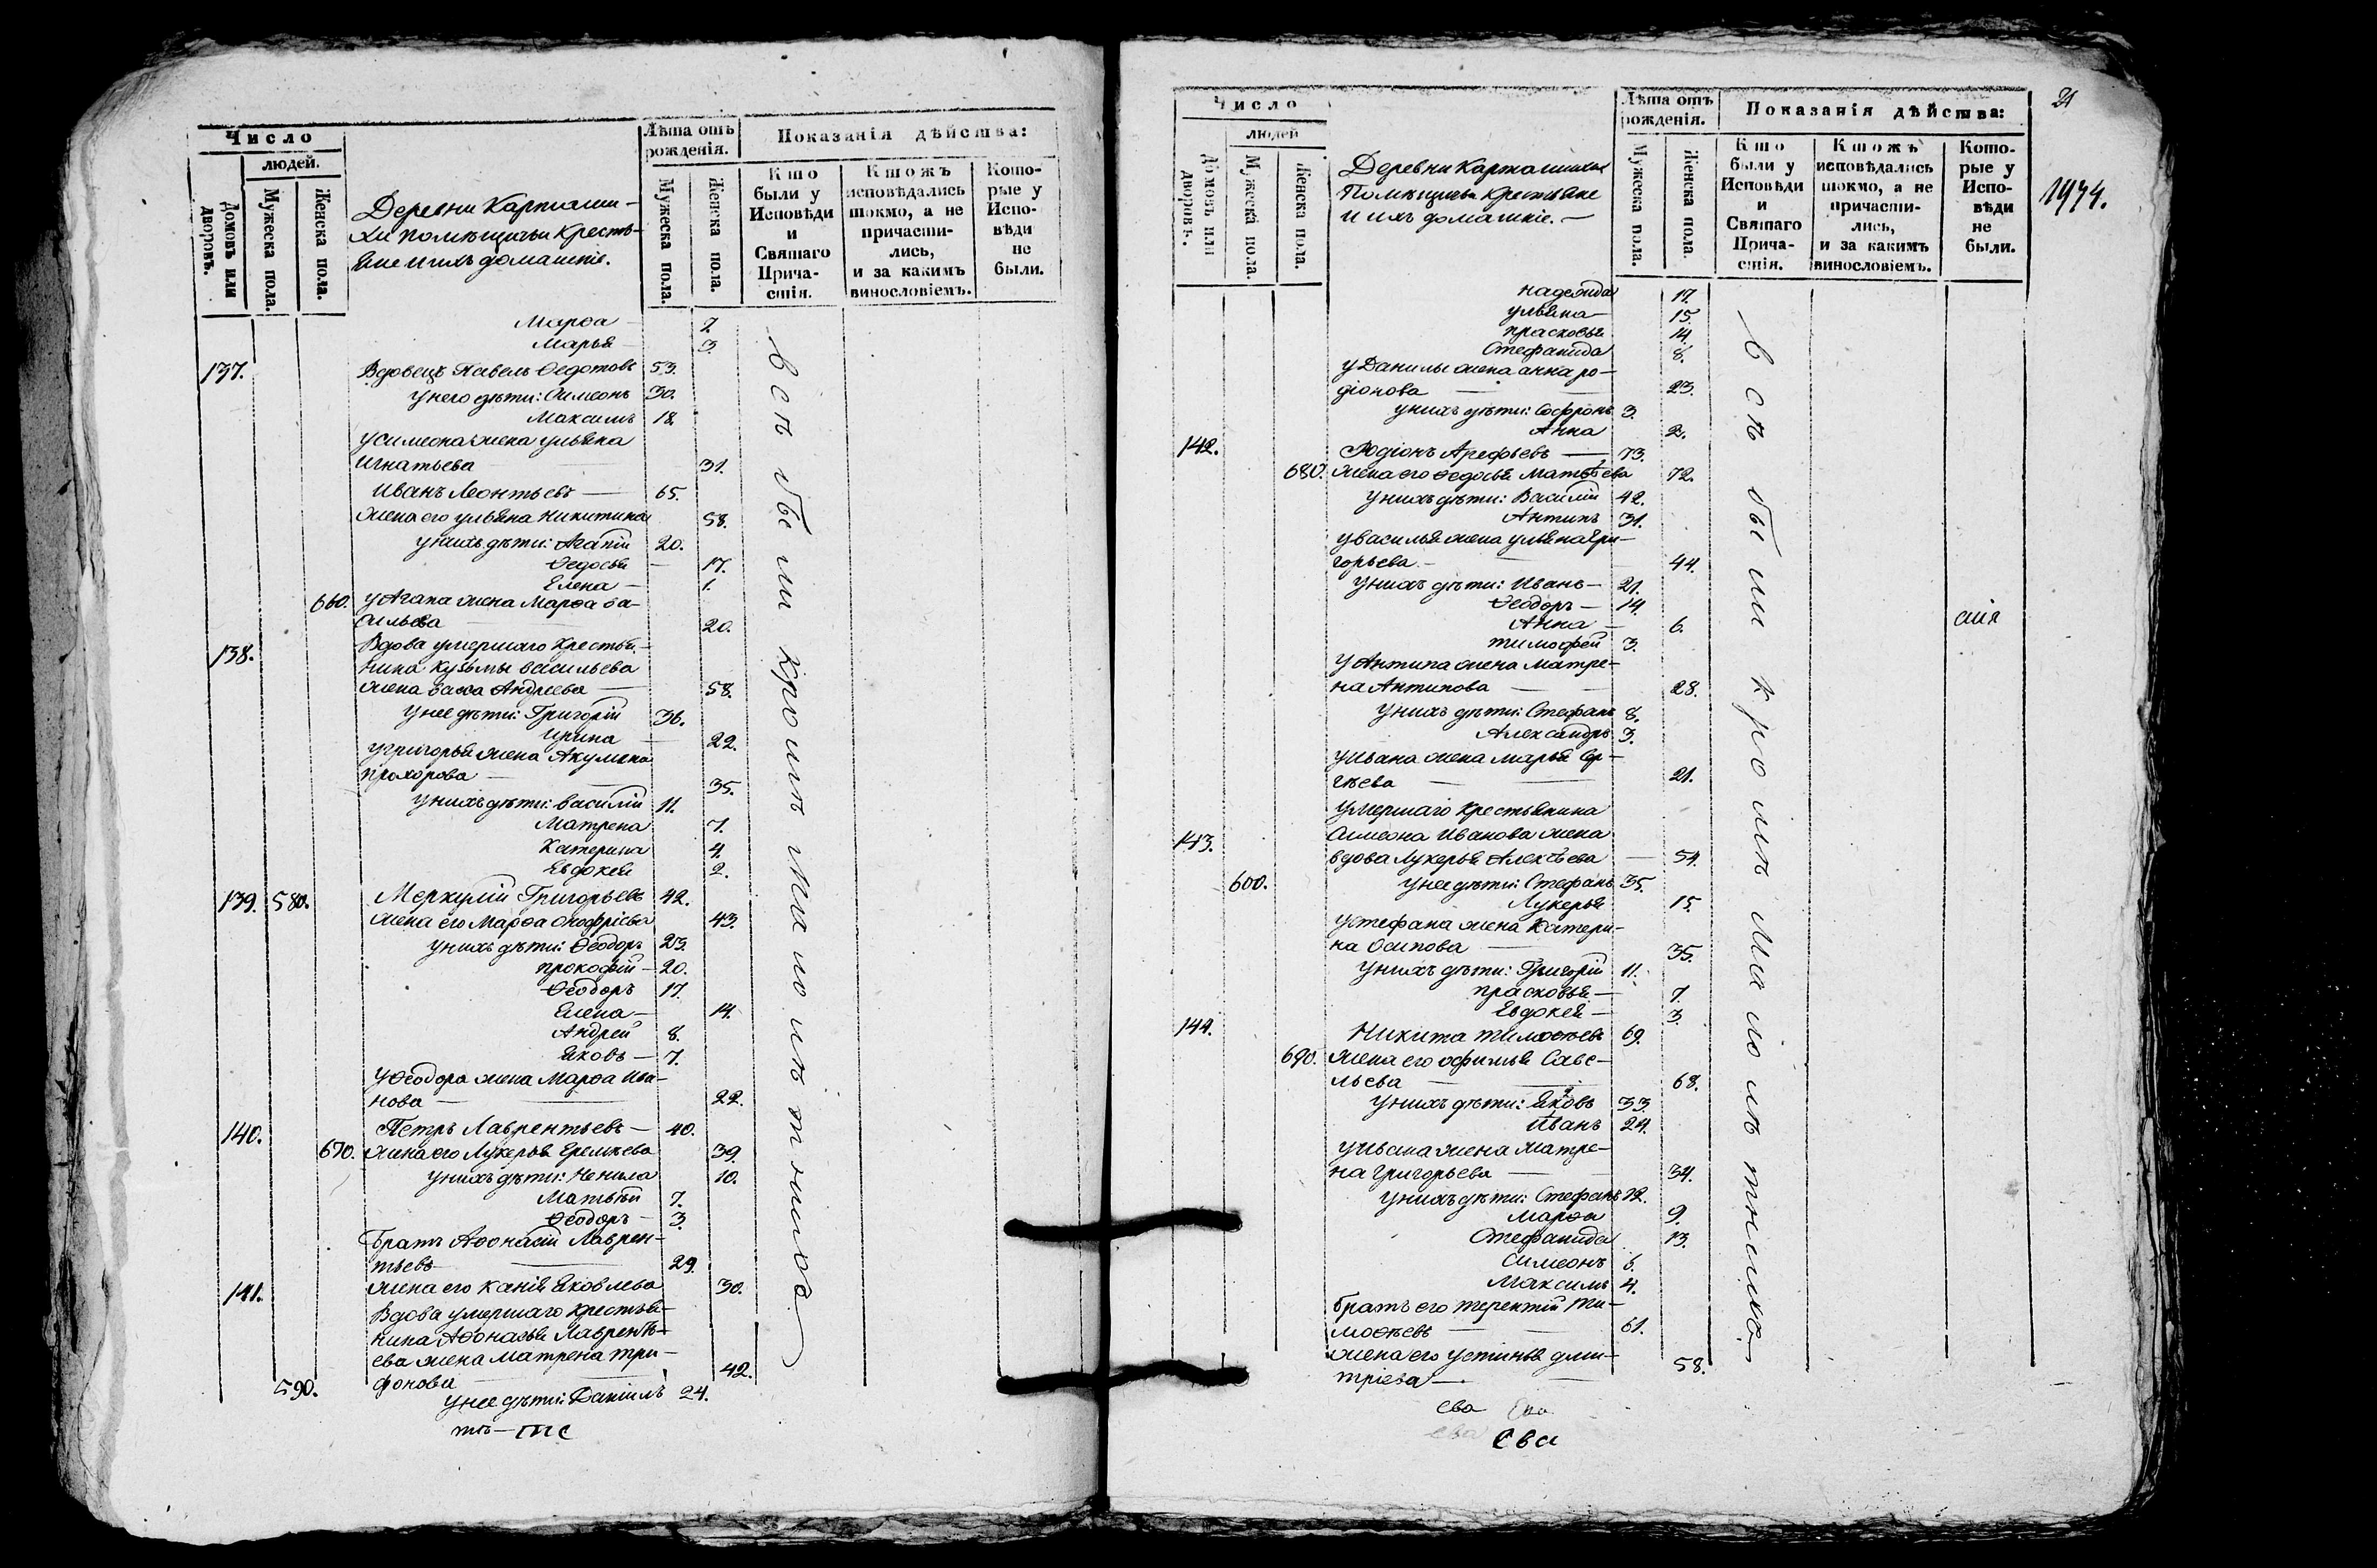 Число
людей.
Домовъ или дворовъ.
Мужеска пола.
Женска пола.
Деревни Карташи-
хи помѣщичьи кресть-
яне и ихъ домашніе.
Лѣта отъ рожденія.
Мужеска пола.
Женска пола.
Показанія дѣйства:
Кто были у Исповѣди и Святаго Прича-стія.
Ктожъ исповѣдались токмо, а не причасти-лись, и за какимъ винословіемъ.
Кото-рые у Испо-вѣди не были.
Марѳа — 7.
Марья — 3.
137. Вдовецъ Павелъ Ѳедотовъ 53.
у него дѣти: Симеонъ 30.
Максимъ 18.
у Симеона жена Ульяна
Игнатьева 31.
Иванъ Леонтьевъ — 65.
жена его Ульяна Никитина 58.
у нихъ дѣти: Агапій 20.
Ѳедосья — 17.
Елена — 1.
660. у Агапа жена Марѳа Ва-
сильева 20.
138. Вдова умершаго крестья-
нина Кузьмы Васильева
жена Васса Андреева — 58.
у нее дѣти: Григорій 36.
Ирина — 22.
у Григорья жена Акулина
Прохорова — 35.
у нихъ дѣти: Василій 11.
Матрена 7.
Катерина 4.
Евдокея 2.
139. 580. Меркулій Григорьевъ 42.
жена его Марѳа Онофріева 43.
у нихъ дѣти: Ѳеодоръ 23.
Прокофій — 20.
Ѳеодоръ 17.
Елена — 14.
Андрей 8.
Яковъ — 7.
у Ѳеодора жена Марѳа Ива-
нова — 22.
140. Петръ Лаврентьевъ — 40.
670. жена его Лукерья Еремѣева 39.
у нихъ дѣти: Ненила 10.
Матвѣй 7.
Ѳеодоръ — 3.
братъ Аѳонасій Лаврен-
тьевъ — 29.
141. жена его Ксанія Яковлева 30.
Вдова умершаго крестья-
нина Аѳонасья Лаврентъ-
ева жена Матрена Три-
590. фонова 42.
у нее дѣти: Даніилъ 24.
всѣ были кромѣ малолѣтнихъ
Число
людей
Домовъ или дворовъ.
Мужеска пола.
Женска пола.
Деревни Карташихи
Помѣщичьи Крестьяне
и ихъ домашніе. —
Лѣта отъ рожденія.
Мужеска пола.
Женска пола.
Показанія дѣйства:
Кто были у Исповѣди и Святаго Прича-стія.
Ктожъ исповѣдались токмо, а не причасти-лись, и за какимъ винословіемъ.
Кото-рые у Испо-вѣди не были.
21
1974.
Надежда 17.
Ульяна — 15.
Прасковья 14
Стефанида 8.
у Данилы жена Анна Ро-
діонова — 23.
у нихъ дѣти: Софронъ 3.
Анна 2.
142. Родіонъ Арефьевъ — 73.
680. жена его Ѳедосья Матвѣева 72.
у нихъ дѣти: Василій 42.
Антипъ 31.
у Василья жена Ульяна Гри-
горьева — 44.
у нихъ дѣти: Иванъ — 21.
Ѳеодоръ — 14.
Анна — 6.
Тимофей 3.
у Антипа жена Матре-
на Антипова — 28.
у нихъ дѣти: Стефанъ 8.
Александръ 3.
у Ивана жена Марья Сер-
гѣева — 21.
умершаго крестьянина
143. Симеона Иванова жена
вдова Лукерья Алексѣева — 54.
600. у нее дѣти: Стефанъ 35.
Лукерья 15.
у Стефана жена Катери-
на Осипова — 35.
у нихъ дѣти: Григорій 11.
Прасковья — 7.
Евдокея — 3.
144. Никита Тимоѳѣевъ 69.
690. жена его Офимья Саве-
льева — 68.
у нихъ дѣти: Яковъ 33.
Иванъ 24.
у Ивана жена Матре-
на Григорьева — 34.
у нихъ дѣти: Стефанъ 12.
Марѳа 9.
Стефанида 13.
Симеонъ 6.
Максимъ 4.
братъ его Терентій Ти-
моѳѣевъ — 61.
жена его Устинья Дми-
тріева — 58.
ева
ева
всѣ были кромѣ малолѣтнихъ